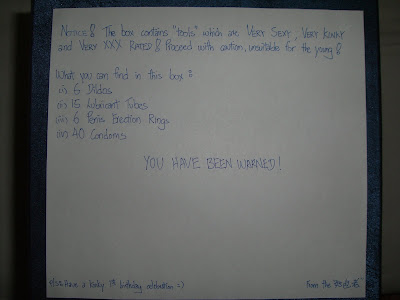 NOTICE! The box contains "tools" which are VERY SEXY, VERY KINKY
and VERY XXX RATED! Proceed with caution, unsuitable for the young!
What you can find in this box:
(i) 6 Dildos
(ii) 15 Lubricant Tubes
(iii) 6 Penis Erection Rings
(iv) 40 Condoms
YOU HAVE BEEN WARNED!
Have a kinky 1st birthday celebration :)
From the